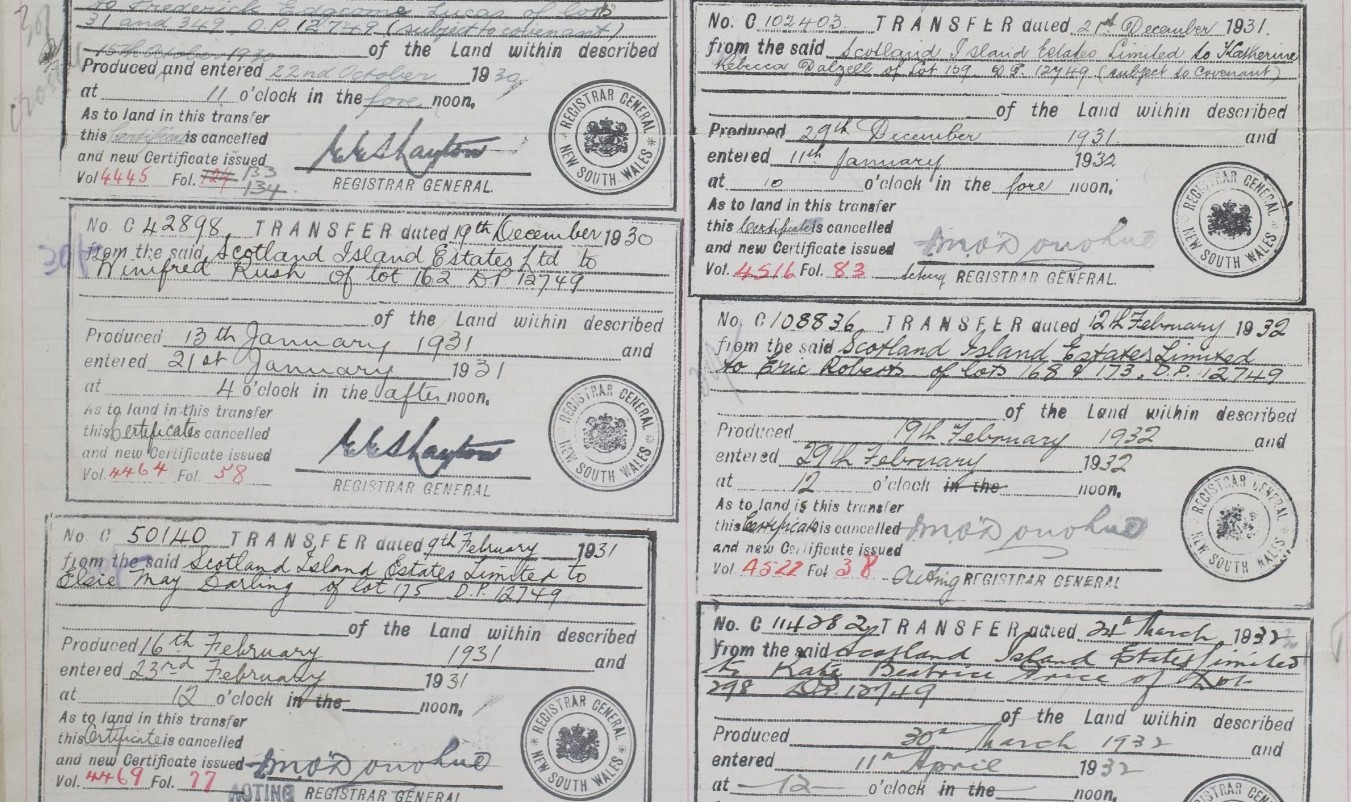 to Frederick Edgcome Lucas of lots
31 and 349. D.P. 12749 (subject to covenant)
15th October 1930 of the Land within described
Produced and entered 22nd October 1930
at 11 o'clock in the fore noon,
As to land in this transfer
this Certificate is cancelled
and new Certificate issued
Vol 4445 Fol. 133
134
REGISTRAR GENERAL.
REGISTRAR GENERAL
NEW SOUTH WALES
No. C 42898 TRANSFER dated 19th December 1930
from the said Scotland Island Estates Ltd to
Winifred Rush of lot 162 D.P. 12749
of the Land within described
Produced 13th January 1931 and
entered 21st January 1931
at 4 o'clock in the after noon,
As to land in this transfer
this Certificate is cancelled
and new Certificate issued
Vol. 4464 Fol. 58
REGISTRAR GENERAL
REGISTRAR GENERAL
NEW SOUTH WALES
No. C 50140 TRANSFER dated 9th February 1931
from the said Scotland Island Estates Limited to
Elsie May Darling of lot 175 D.P. 12749
of the Land within described
Produced 16th February 1931 and
entered 23rd February 1931
at 12 o'clock in the noon,
As to land in this transfer
this Certificate is cancelled
and new Certificate issued
Vol. 4469 Fol. 77
REGISTRAR GENERAL
REGISTRAR GENERAL
NEW SOUTH WALES
No. C 102403 TRANSFER dated 21st December 1931.
from the said Scotland Island Estates Limited to Katherine
Rebecca Dalzell of Lot 159. D.P. 12749 (subject to Covenant)
of the Land within described
Produced 29th December 1931 and
entered 11th January 1932
at 10 o'clock in the fore noon,
As to land in this transfer
this Certificate is cancelled
and new Certificate issued
Vol. 4516 Fol. 83 Acting REGISTRAR GENERAL.
REGISTRAR GENERAL
NEW SOUTH WALES
No. C 108836 TRANSFER dated 12th February 1932
from the said Scotland Island Estates Limited
to Eric Roberts of lots 168 & 173. D.P. 12749
of the Land within described
Produced 19th February 1932 and
entered 29th February 1932
at 12 o'clock in the noon,
As to land in this transfer
this Certificate is cancelled
and new Certificate issued
Vol 4522 Fol 38 Acting REGISTRAR GENERAL
REGISTRAR GENERAL
NEW SOUTH WALES
No. C 114282 TRANSFER dated 24th March 1932
from the said Scotland Island Estates Limited
to Kate Beatrice Price of Lot
298 D.P. 12749
of the Land within described
Produced 30th March 1932 and
entered 11th April 1932
at 12 o'clock in the noon,
REGISTRAR GENERAL